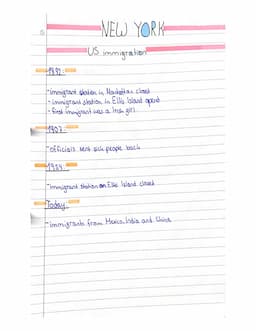 NEW YORK
US immigration
1892:
- immigrant station in Manhattan closed
- immigrant station in Ellis Island opend
- first immigrant was a Irish girl
1907:
- officials sent sick people back
1954:
- immigrant station on Ellis Island closed
Today:
- immigrants from Mexico, India and China